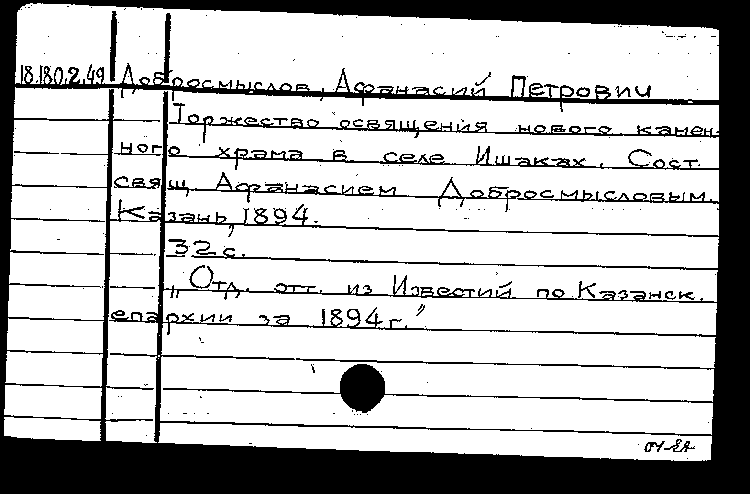 18.180.2.49 Добросмыслов, Афанасий Петрович
Торжество освящения нового камен-
ного храма в селе Ишаках. Сост.
свящ. Афанасием Добросмысловым.
Казань, 1894.
32 с.
„Отд. отт. из Известий по Казанск.
епархии за 1894 г."